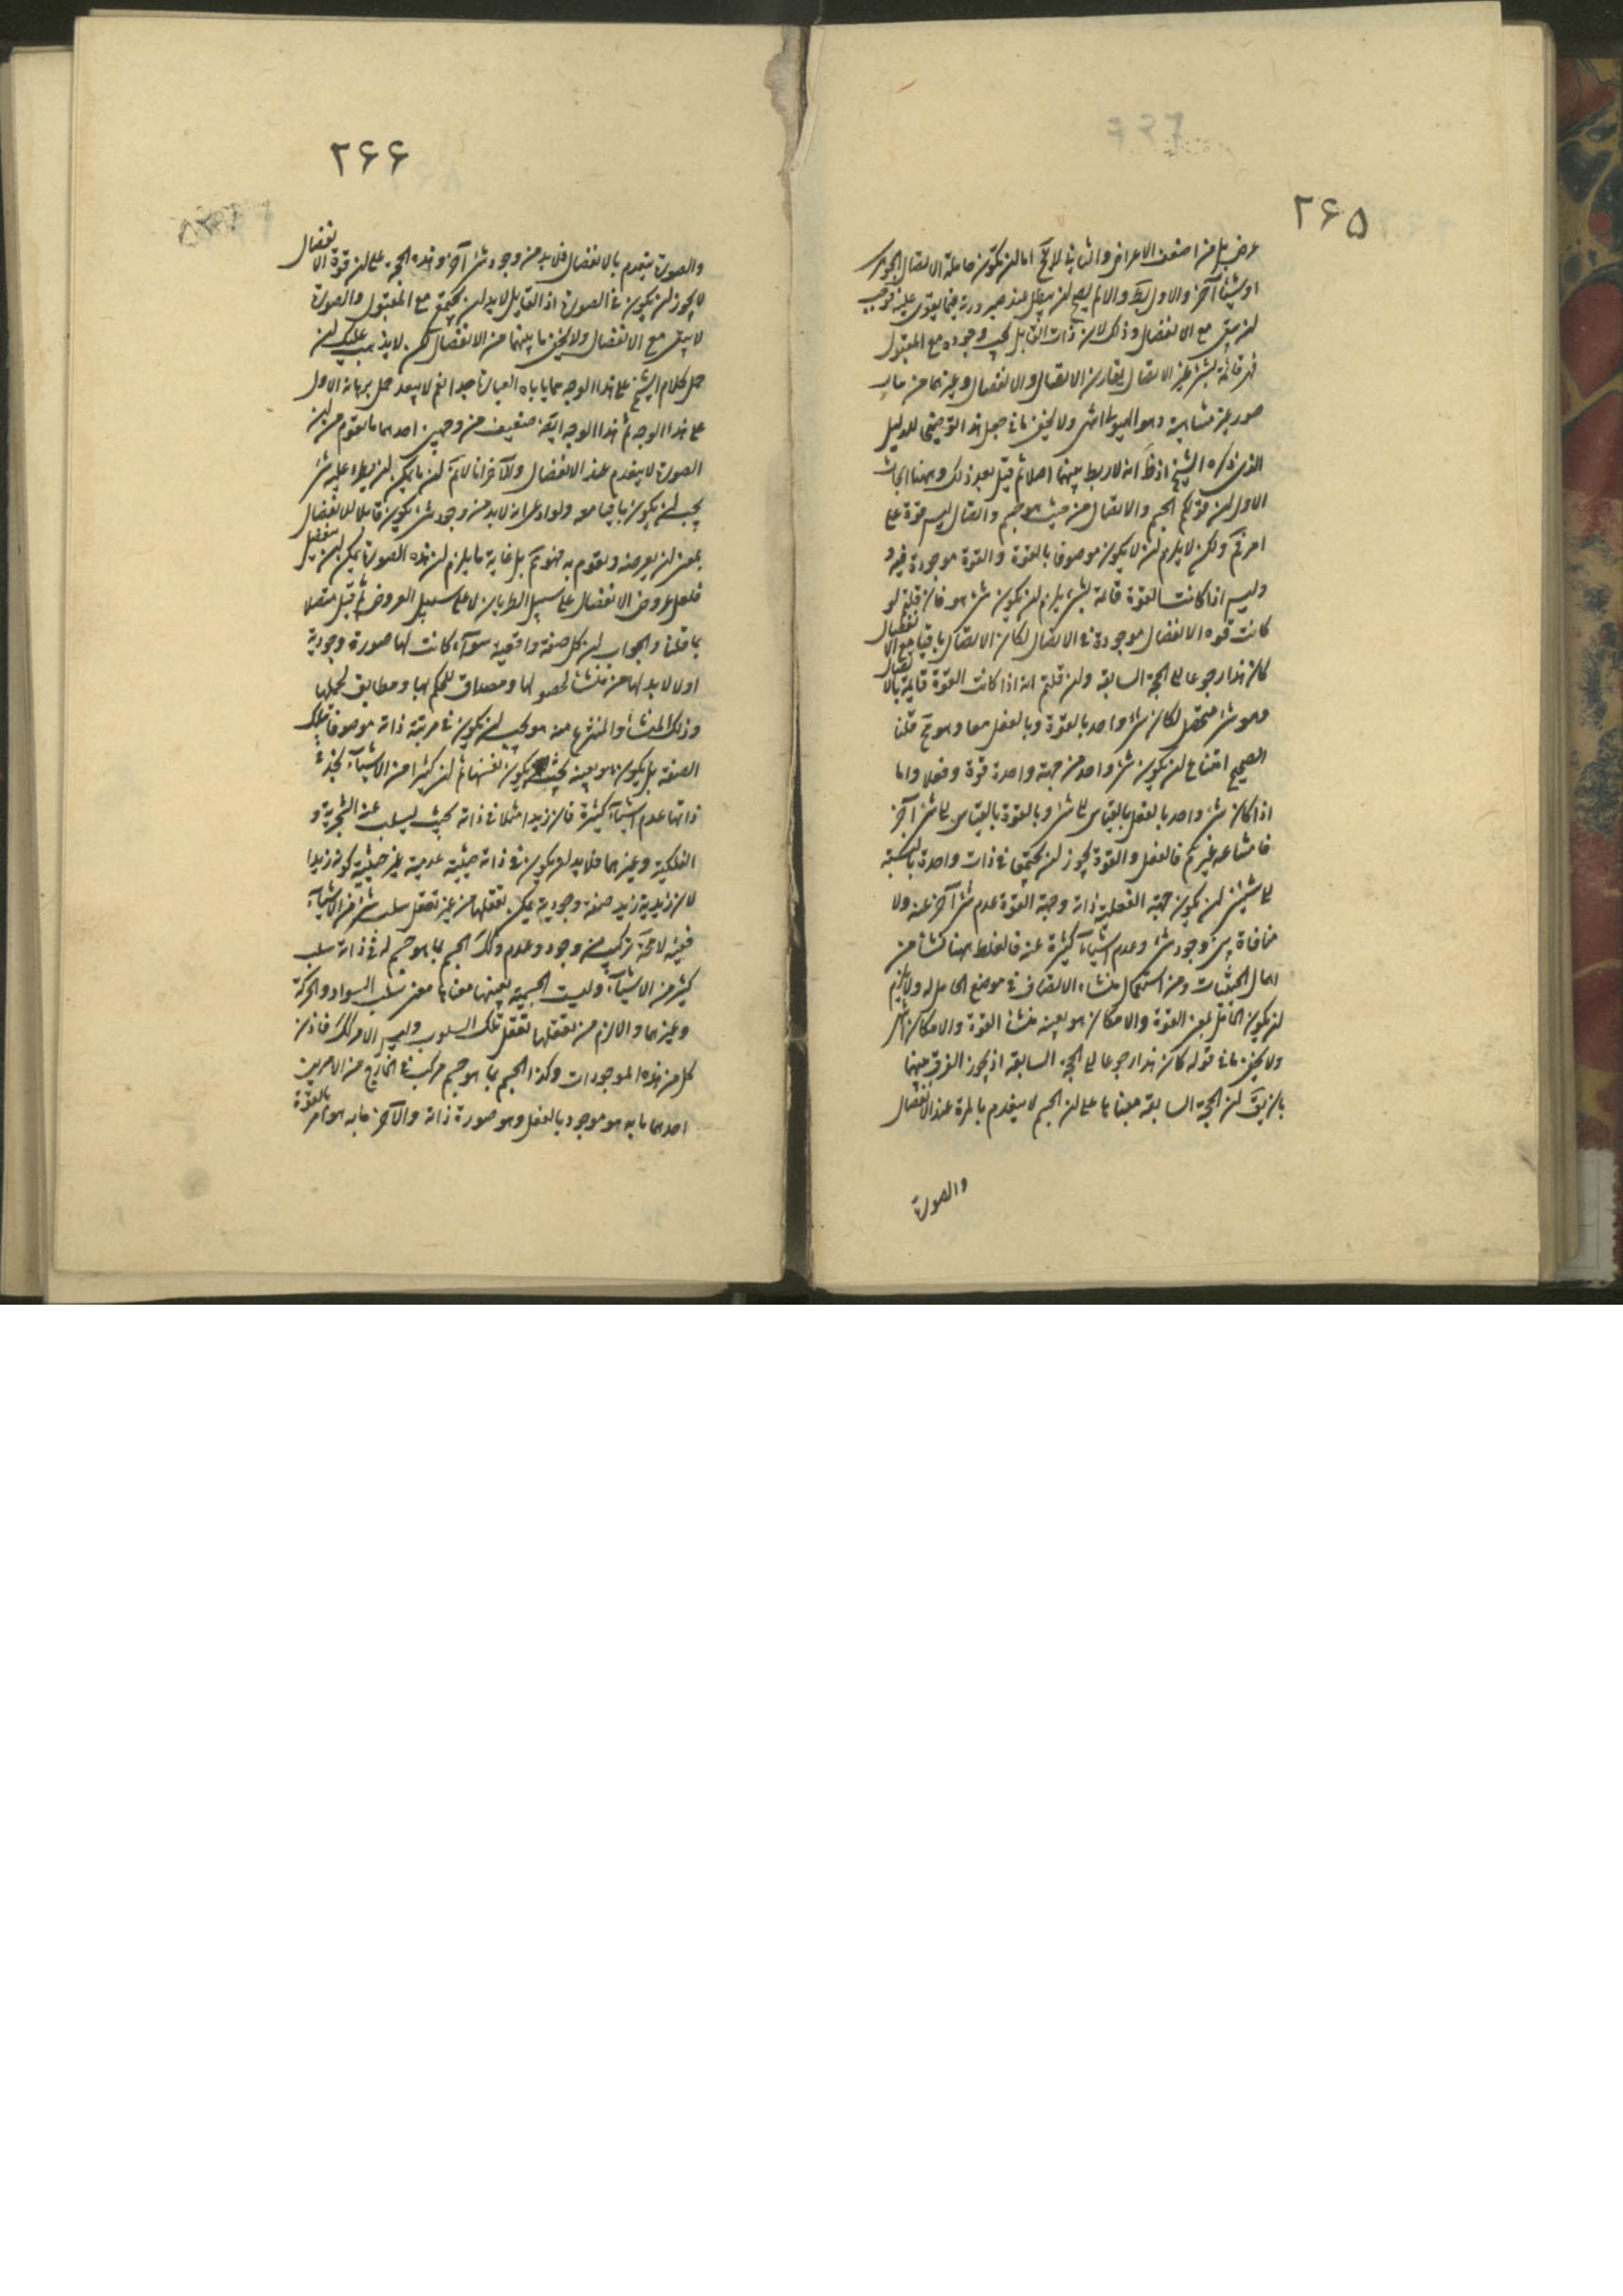 ۲۶۵
عرض بل من اضعف الاعراض والثانی لا یخ اما ان یکون حاملة الاتصال الجوهر
او شیئا آخر والاول بط والا لم یصح ان یبطل عند صیرورته فیما یقوی علیه فوجب
ان یبقی مع الانفصال وذلک لان ذات القابل یجب وجوده مع المقبول
فهی قائمة بشیء غیر الاتصال یقارن الاتصال والانفصال وغیرهما من
صور غیر متناهیة وهو الهیولی انتهی ولا یخفی ما فی جعل هذا توضیحا للدلیل
الذی ذکره الشیخ اذ ظ انه لا ربط بینهما اصلا ثم قیل بعد ذلک وههنا ابحاث
الاول ان قولکم الجسم والاتصال من حیث هو جسم واتصال لیس قوة علی
امر تم ولکن لا یلزم ان لا یکون موصوفا بالقوة والقوة موجودة فیه و
ولیس اذا کانت القوة قائمة بشیء یلزم ان یکون شیء هو فان قلتم لو
کانت قوه الانفصال موجودة فی الاتصال لکان الاتصال باقیا مع الانفصال
کان هذا رجوعا الی الحجة السابقه وان قلتم انه اذا کانت القوة قایمة بالاتصال
وهو شیء متحصل لکان شیء واحد بالقوة وبالفعل معا وهو مح قلنا
الصحیح امتناع ان یکون شیء واحد من جهة واحدة قوة وفعلا واما
اذا کان شیء واحد بالفعل بالقیاس الی شیء وبالقوة بالقیاس الی شیء آخر
فامتناعه غیر تم فالفعل والقوة یجوز ان یجتمعا فی ذات واحدة بالنسبة
الی شیئین ان یکون جهة الفعلیة ذاته وجهة القوة عدم شیء آخر عنه ولا
منافاة بین وجود شیء وعدم اشیاء کثیرة عنه فالغلط ههنا نشأ من
اهمال الحیثیات ومن استعمال منشاء الاتصاف فی موضع الحامل له ولا یلزم
ان یکون الحامل لمعنی القوة والامکان هو بعینه منشأ القوة والامکان انتهی
ولا یخفی ما فی قوله کان هذا رجوعا الی الحجة السابقه اذ یجوز الفرق بینهما
بان یق ان الحجة السابقة مبناها علی ان الجسم لا ینعدم بالمرة عند الانفصال
والصورة
۲۶۶
والصورة ینعدم بالانفصال فلا بد من وجود شیء آخر وهذه الحجة علی ان قوة الانفصال
لا یجوز ان یکون فی الصورة اذ القابل لا بد ان یجتمع مع المقبول والصورة
لا یبقی مع الانفصال ولا یخفی ما بینهما من الانفصال لکن لا یذهب علیک ان
حمل کلام الشیخ علی هذا الوجه مما یاباه العبارة جدا نعم لا یبعد حمل برهانه الاول
علی هذا الوجه ثم هذا الوجه ایضا ضعیف من وجهین احدهما ما تقوم من ان
الصورة لا ینعدم عند الانفصال والآخر انا لانم ان ما یمکن ان یطرء علیه شیء
یجب ان یکون باقیا معه ولو ادعی انه لا بد من وجود شیء یکون قابلا للانفصال
بمعنی ان یعرضه ویقوم به فهو تم بل غایة ما یلزم ان هذه الصورة یمکن ان ینفصل
فلعل عروض الانفصال علی سبیل الطریان لا علی سبیل العروض ثم قیل متصلا
بما قلنا والجواب ان کل صفة واقعیة سوآء کانت لها صورة وجودیة
او لا لا بد لها من منشأ لحصولها ومصداق للحکم بها ومطابق لحملها
وذلک المنشأ والمنتزع منه هو یجب ان یکون فی مرتبة ذاته موصوفا بتلک
الصفة بل یکون هو بعینه بحیث یکون نفسها ثم ان کثیرا من الاشیآء بحذاء
ذاتها عدم اشیآء کثیرة فان زیدا مثلا فی ذاته بحیث یسلب عنه الشجریة و
الفلکیة وغیرهما فلا بد ان یکون فی ذاته حیثیة عدمیة غیر حیثیة کونه زیدا
لان زیدیة زید صفة وجودیة یمکن تعقلها من غیر تعقل سلب شیء من الاشیآء
ففیه لا محة ترکیب من وجود وعدم وکذلک الجسم بما هو جسم له فی ذاته سلب
کثیر من الاشیآء ولیست الجسمیة بعینها معناها معنی سلب السواد والحرکة
وغیرهما والا لزم من تعقلها تعقل تلک السلوب ولیس الامر کک فاذن
کل من هذه الموجودات وکذا الجسم بما هو جسم مرکب فی الخارج من الامرین
احدهما ما به هو موجود بالفعل وهو صورة ذاته والآخر ما به هو امر بالقوة